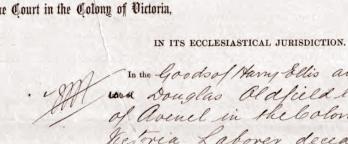 e Court in the Colony of Victoria,
IN ITS ECCLESIASTICAL JURISDICTION.
In the Goods of Harry Ellis a
Douglas Oldfield
of Avenel in the Colon
Victoria Laborer decea